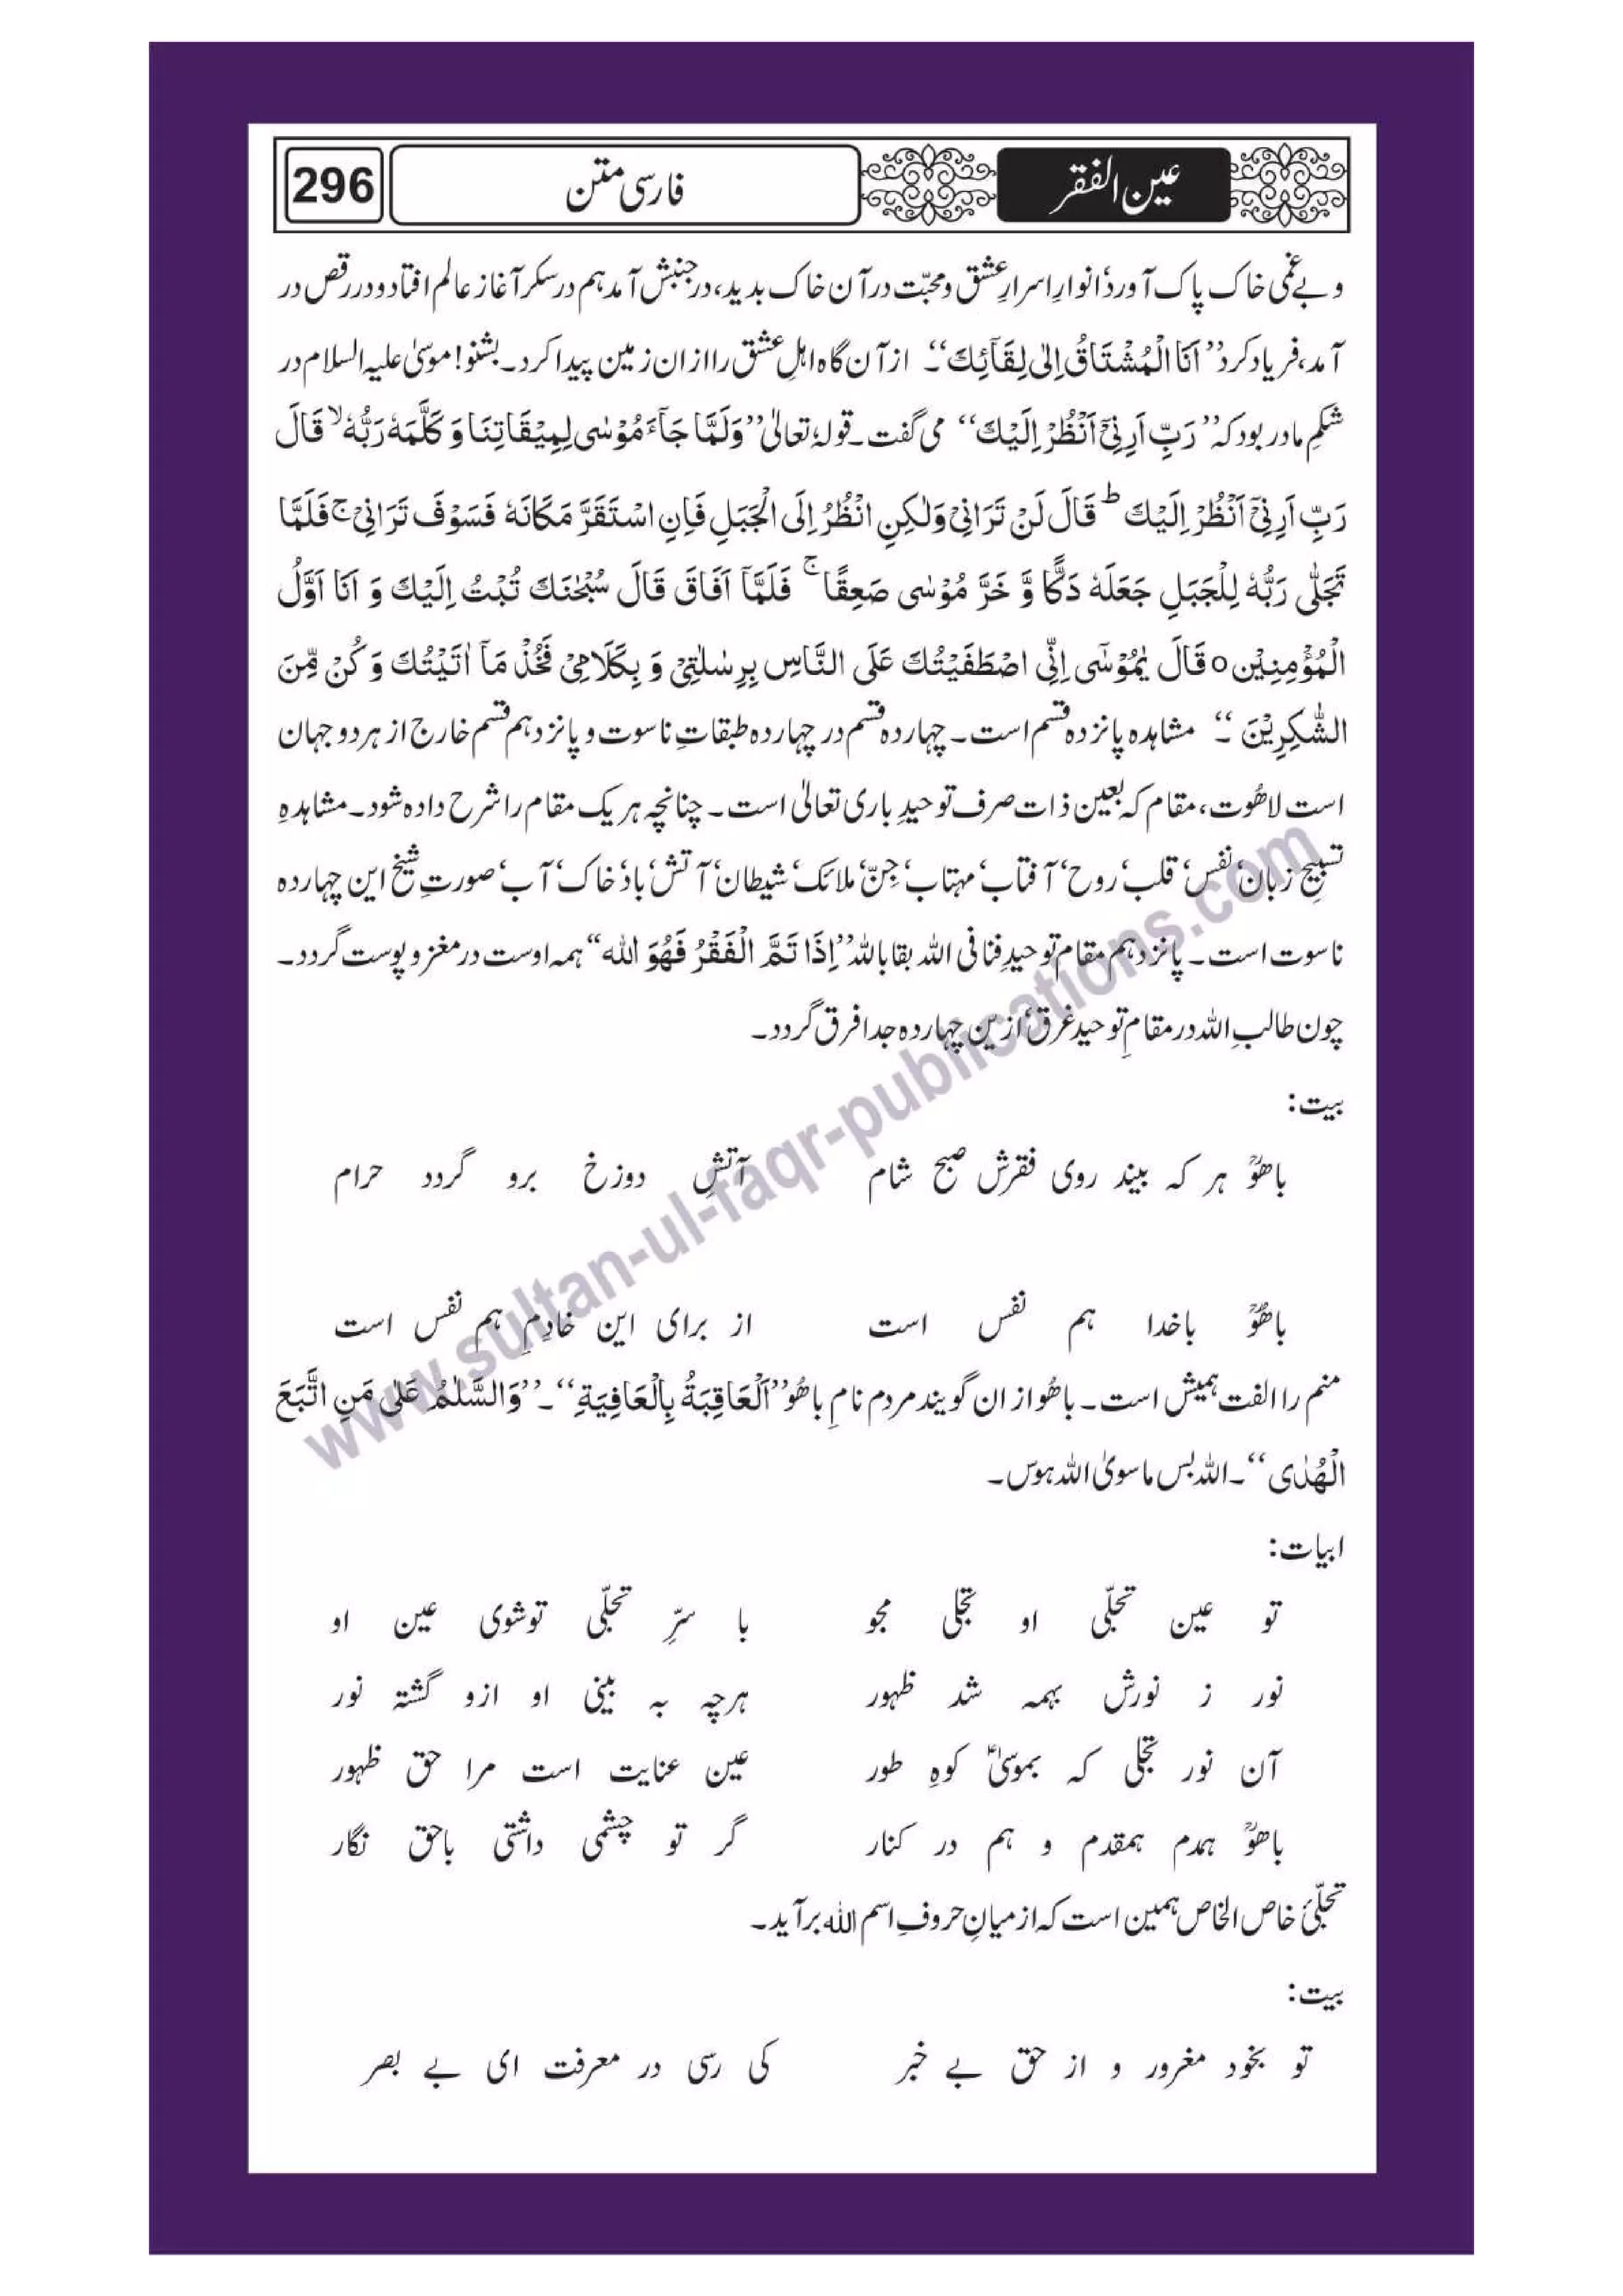 عین الفقر
فارسی متن
296
و بے غمی خاک پاک آورد’ انوارِ اسرارِ عشق و محبّت در آن خاک بدید، در جنبش آمد ہم در سکر آغاز عالم افتاد و در رقص در
آمد، فریاد کرد ’’اَنَا الْمُشْتَاقُ اِلٰی لِقَآئِكَ‘‘۔ از آن گاہ اہلِ عشق را ازان زمین پیدا کرد۔ بشنو! موسیٰ علیہ السلام در
شکمِ مادر بود کہ ’’رَبِّ اَرِنِیْٓ اَنْظُرْ اِلَیْكَ‘‘ می گفت۔ قولہٗ تعالیٰ ’’وَلَمَّا جَآءَ مُوْسٰی لِمِیْقَاتِنَا وَ كَلَّمَهٗ رَبُّهٗ ۙ قَالَ
رَبِّ اَرِنِیْٓ اَنْظُرْ اِلَیْكَ ؕ قَالَ لَنْ تَرَانِیْ وَلٰكِنِ انْظُرْ اِلَی الْجَبَلِ فَاِنِ اسْتَقَرَّ مَكَانَهٗ فَسَوْفَ تَرَانِیْ ۚ فَلَمَّا
تَجَلّٰی رَبُّهٗ لِلْجَبَلِ جَعَلَهٗ دَكًّا وَّ خَرَّ مُوْسٰی صَعِقًا ۚ فَلَمَّآ اَفَاقَ قَالَ سُبْحٰنَكَ تُبْتُ اِلَیْكَ وَ اَنَا اَوَّلُ
الْمُؤْمِنِیْن o قَالَ یٰمُوْسٰٓی اِنِّی اصْطَفَیْتُكَ عَلَی النَّاسِ بِرِسٰلٰتِیْ وَ بِكَلَامِیْ فَخُذْ مَآ اٰتَیْتُكَ وَ كُنْ مِّنَ
الشّٰكِرِیْنَ‘‘۔ مشاہدہ پانزدہ قسم است۔ چہاردہ قسم در چہاردہ طبقاتِ ناسوت و پانزدہم قسم خارج از ہر دو جہان
است لاھُوت، مقام کہ بعین ذات صرف توحیدِ باری تعالیٰ است۔ چنانچہ ہر یک مقام را شرح دادہ شود۔ مشاہدہِ
تسبیحِ زبان’ نفس’ قلب’ روح’ آفتاب’ مہتاب’ جِنّ’ ملائک’ شیطان’ آتش’ باد’ خاک’ آب’ صورتِ شیخ این چہاردہ
ناسوت است۔ پانزدہم مقام توحیدِ فنا فی اللہ بقا باللہ ’’اِذَا تَمَّ الْفَقْرُ فَهُوَ الله‘‘ ہمہ اوست در مغز و پوست گردد۔
چون طالبِ اللہ در مقامِ توحید غرق’ ازین چہاردہ جدا فرق گردد۔
بیت:
باھُوؒ ہر کہ بیند روی فقرش صبح شام آتشِ دوزخ برو گردد حرام
باھُوؒ باخدا ہم نفس است از برای این خادِمِ ہم نفس است
منم را الفت ہمیش است۔ باھُو از ان گویند مردم نامِ باھُو ’’اَلْعَاقِبَةُ بِالْعَافِیَةِ‘‘۔ ’’وَالسَّلٰمُ عَلٰی مَنِ اتَّبَعَ
الْهُدٰی‘‘۔ اللہ بس ما سویٰ اللہ ہوس۔
ابیات:
تو عین تجلّی او تجلی مجو با سرِّ تجلّی تو شوی عین او
نور ز نورش بہمہ شد ظہور ہرچہ بہ بینی او ازو گشتہ نور
آن نور تجلی کہ بموسیٰؑ کوہِ طور عین عنایت است مرا حق ظہور
باھُوؒ ہمدم ہمقدم و ہم در کنار گر تو چشمی داشتی باحق نگار
تجلّیٔ خاص الخاص ہمین است کہ از میانِ حروفِ اسم اللہ برآید۔
بیت:
تو بخود مغرور و از حق بے خبر کی رسی در معرفت ای بے بصر
www.sultan-ul-faqr-publications.com